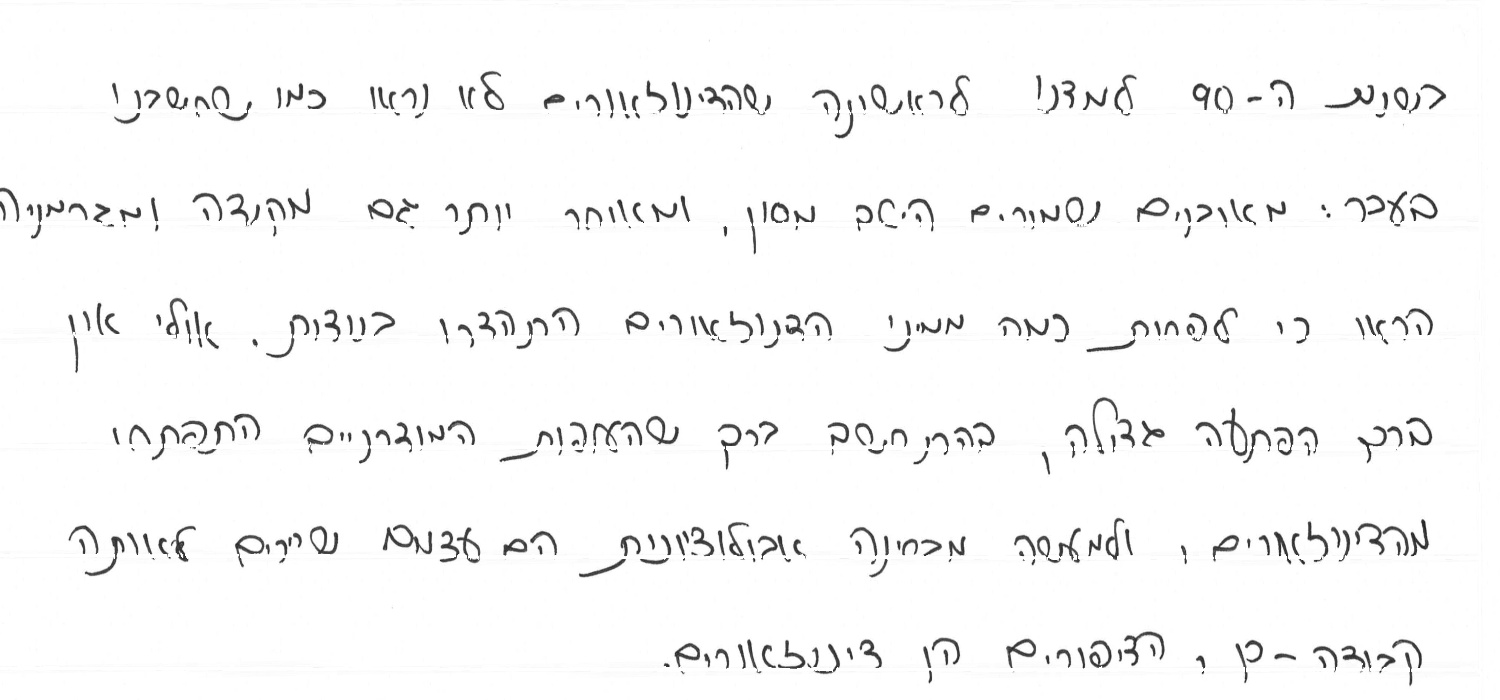 בשנות ה-90 למדנו לראשונה שהדינוזאורים לא נראו כמו שחשבנו
בעבר: מאובנים שמורים היטב מסין, ומאוחר יותר גם מקנדה ומגרמניה
הראו כי לפחות כמה ממיני הדינוזאורים התהדרו בנוצות. אולי אין
בכך הפתעה גדולה, בהתחשב בכך שהעופות המודרניים התפתחו
מהדינוזאורים, ולמעשה מבחינה אבולוציונית הם עצמם שייכים לאותה
קבוצה-כן, הציפורים הן דינוזאורים.